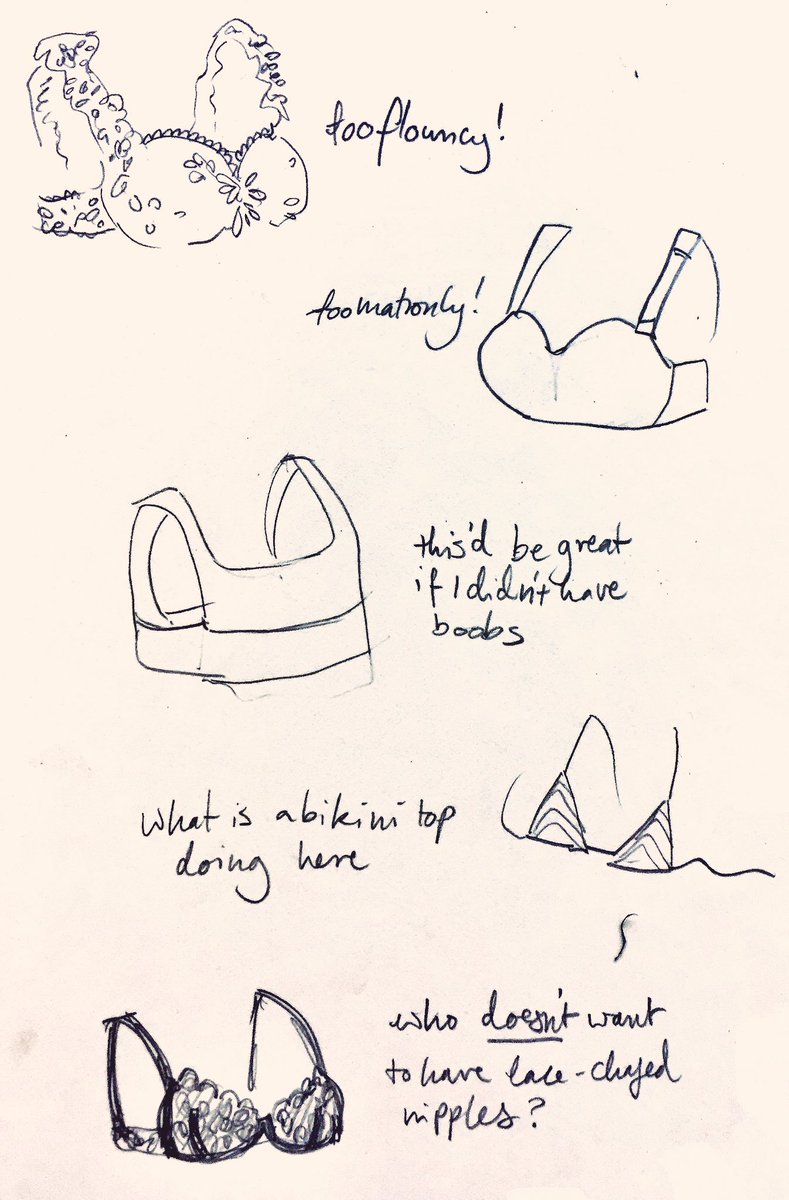 too flouncy!
too matronly!
this'd be great
if I didn't have
boobs
what is a bikini top
doing here
who doesn't want
to have lace-chafed
nipples?